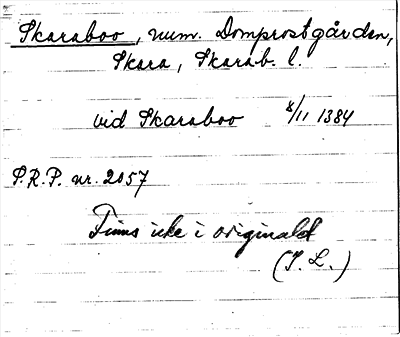 Skaraboo, num. Domprostgården,
Skara, Skarab. l.
vid Skaraboo 8/11 1384
S.R.P. nr. 2057
Finns icke i originalet
(I. L.)